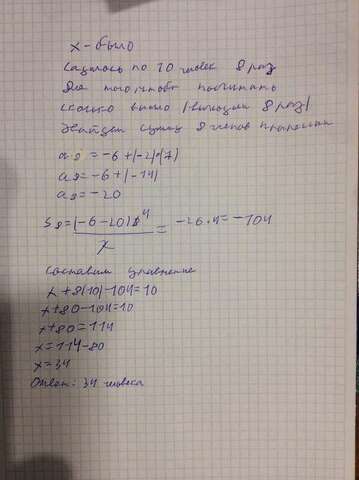 x - было
садилось по 10 человек 8 раз
Для того, чтобы посчитать
сколько вышло (выходили 8 раз)
Найдем сумму 8 членов прогрессии
a8 = -6 + (-2)·(7)
a8 = -6 + (-14)
a8 = -20
S8 = (-6-20)8 4 / 2 = -26·4 = -104
Составим уравнение
x + 8(10) - 104 = 10
x + 80 - 104 = 10
x + 80 = 114
x = 114 - 80
x = 34
Ответ: 34 человека